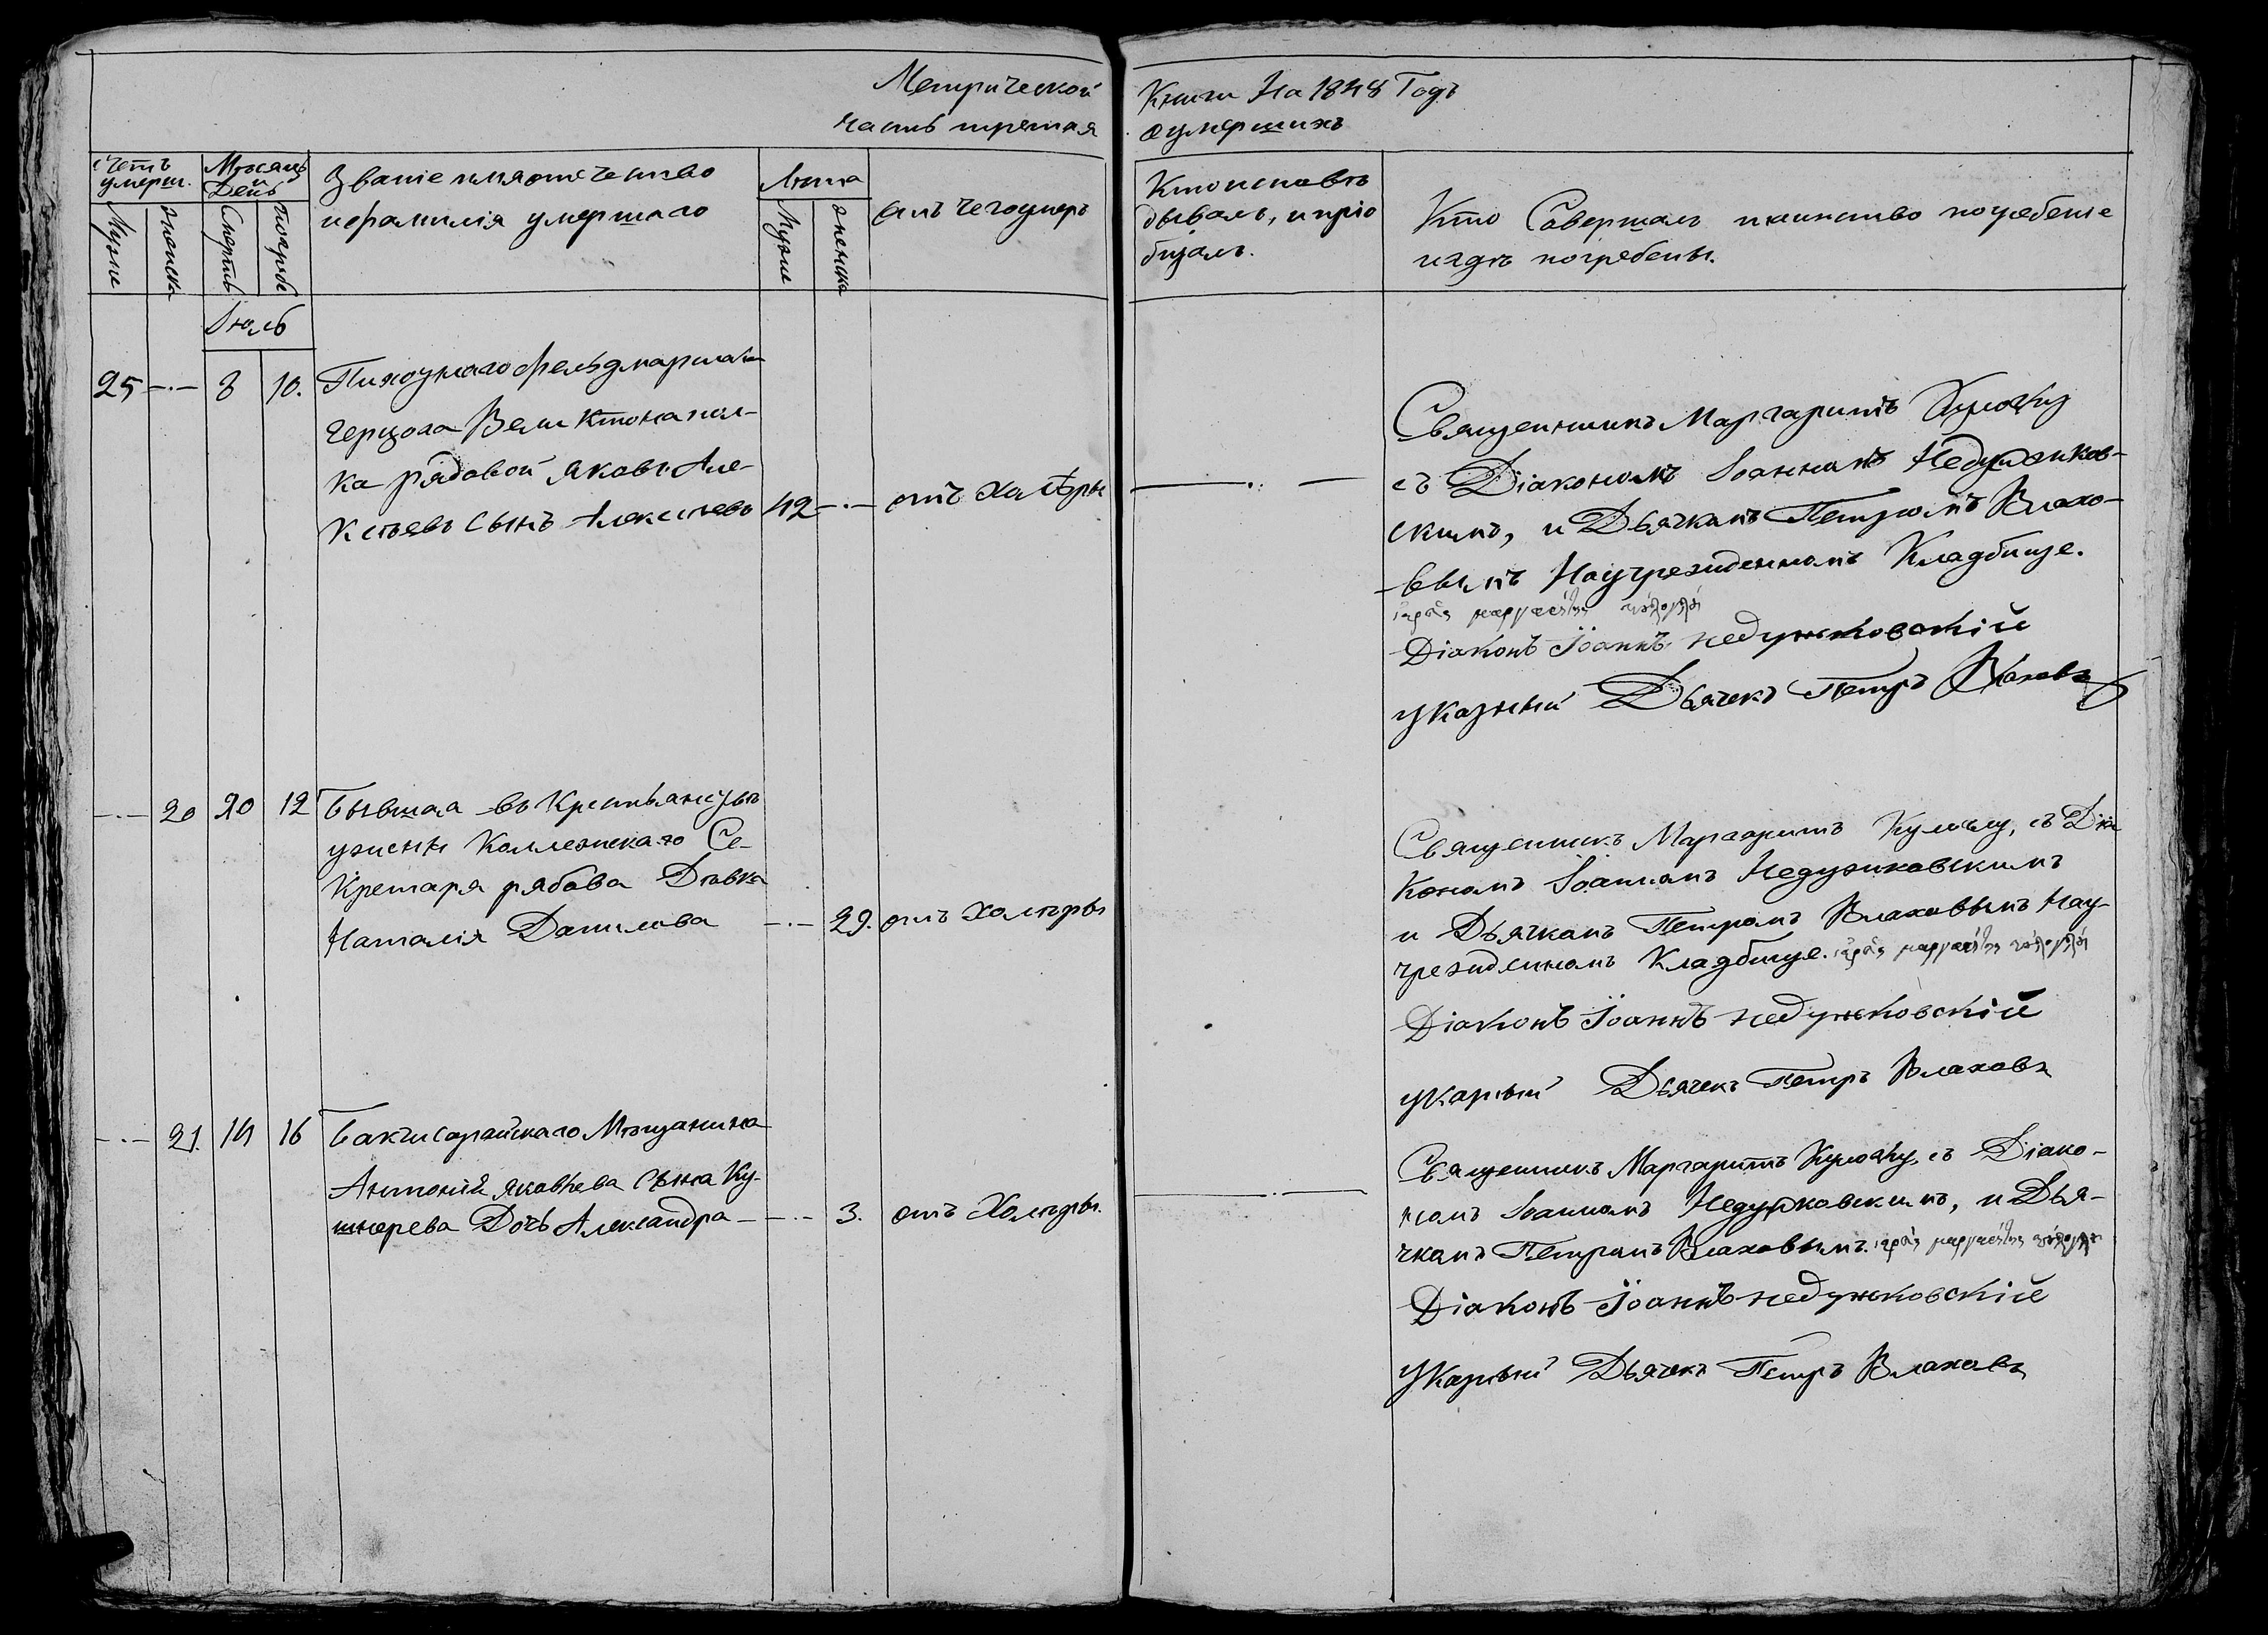 Метрической
часть третая
Книги На 1848 Годъ
оумершихъ
Счетъ умерш.
Мѣсяцъ и День
Званіе имяотечество
ифамилія умершаго
Лѣта
атъ чегоумеръ
Ктоисповѣ
дывалъ, ипріо
бщалъ.
Кто Совершалъ таинство погребеніе
игдѣ погребены.
Мужес
Женска
Смерти
Мужес
Женска
Іюль
25 8 10. Фельдмаршала
герцога Велинктона пол-
ка рядовой Яковъ Але-
Ксѣевъ сынъ Алексѣевъ 42 отъ холѣры
Священникъ Маргаритъ
съ Діакономъ Іоанномъ Недужиков-
скимъ, и Дьячкамъ Петромъ Влахо-
вымъ Научрежденномъ Кладбище.
Діаконъ Іоаннъ недужковскій
указный Дьячекъ Петръ Влаховъ
20 10 12 Бывшая въ Крестьянсувѣ
ужены Коллежскаго Се-
Кретаря рябова Дѣвка
Наталія Данилова 29. отъ холѣры
Священикъ Маргаритъ съ Діа
Кономъ Іоаномъ Недужиковскимъ
и Дьячкамъ Петромъ Влаховымъ Нау-
чрежденомъ Кладбище.
Діаконъ Іоаннъ недужковскій
указный Дьячекъ Петръ Влаховъ
21. 14 16 Бакчисарайскаго Мѣщанина
Антоній яковлева сына Ку-
шнерева Дочь Александра 3. отъ Холѣры.
Священикъ Маргаритъ съ Діако-
номъ Іоаномъ Недужковскимъ, и Дья-
чкамъ Петрамъ Влаховымъ.
Діаконъ Іоаннъ недужковскій
Указный Дьячекъ Петръ Влаховъ